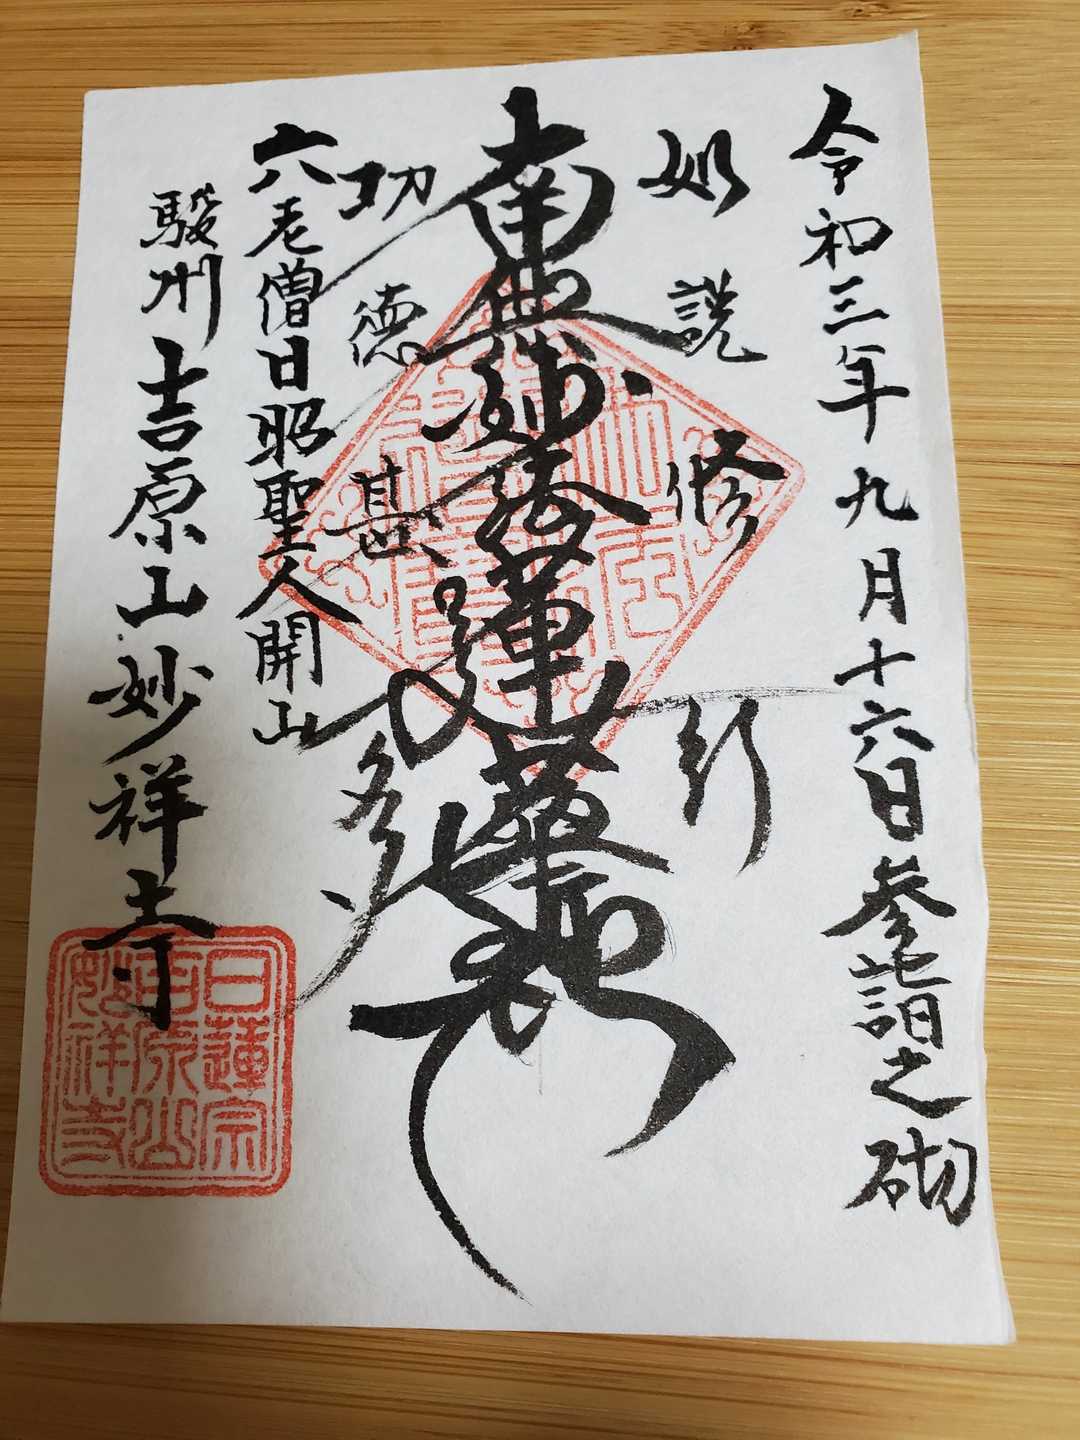 令和三年九月十六日参詣之砌
如説修行
南無妙法蓮華経
功徳甚多
六老僧日昭聖人開山
駿州吉原山妙祥寺
日蓮宗
吉原山
妙祥寺